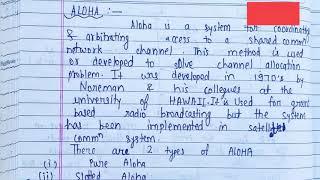 ALOHA :-
Aloha is a system for coordinating
& arbitrating access to a shared commⁿ
network channel. This method is used
or developed to solve channel allocation
problem. It was developed in 1970's by
Noreman & his collegues at the
university of HAWAII. It is used for ground
based radio broadcasting but the system
has been implemented in satellite
commⁿ system.
There are 2 types of ALOHA
(i) Pure Aloha
(ii) Sloted Aloha